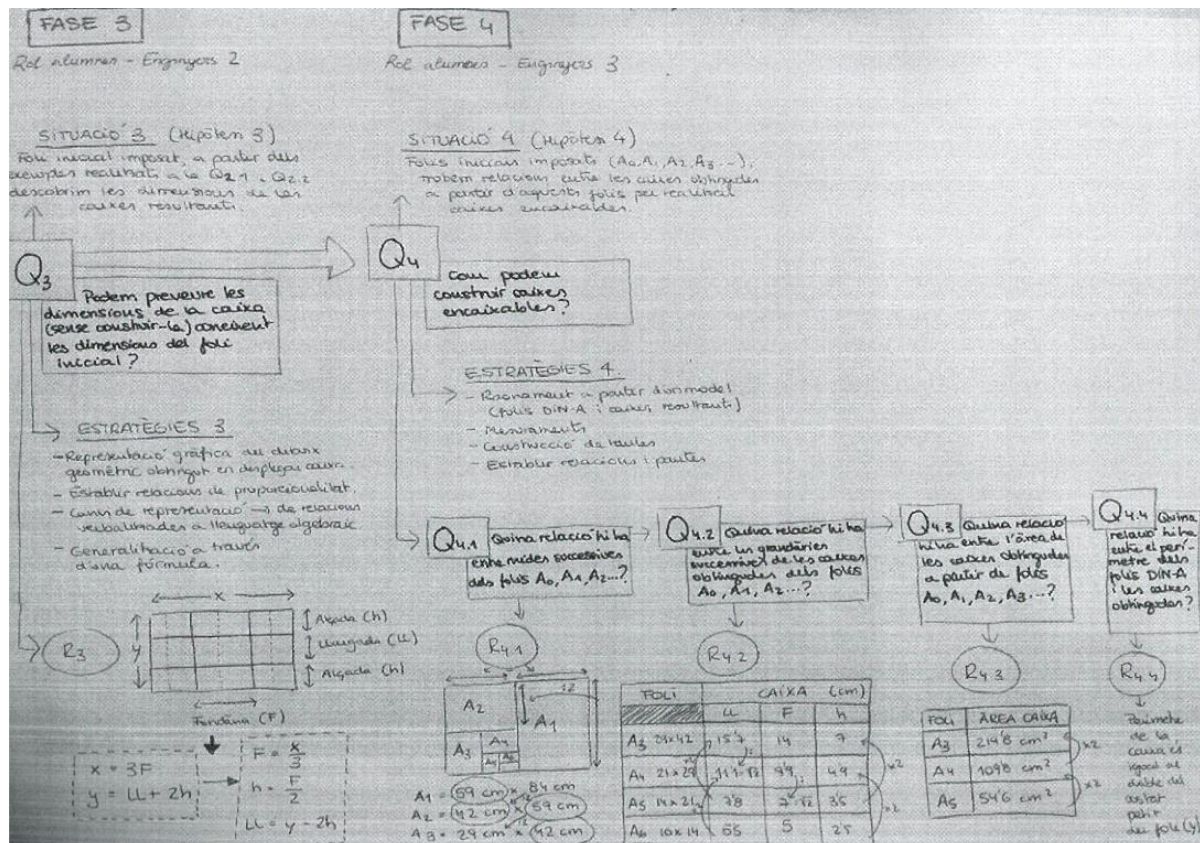 FASE 3
Rol alumnes - Enginyers 2
SITUACIÓ 3 (Hipòtesi 3)
Foli inicial imposat, a partir dels
exemples realitzats a la Q2.1 i Q2.2
descobrim les dimensions de les
caixes resultants.
Q3
Podem preveure les
dimensions de la caixa
(sense construir-la) coneixent
les dimensions del foli
inicial?
ESTRATÈGIES 3
- Representació gràfica del dibuix
geomètric obtingut en desplegar caixa.
- Establir relacions de proporcionalitat.
- Canvi de representació → de relacions
verbalitzades a llenguatge algebraic
- Generalització a través
d'una fórmula.
R3
x
y
Alçada (h)
Llargada (LL)
Alçada (h)
Fondària (F)
x = 3F
y = LL + 2h
F = x/3
h = F/2
LL = y - 2h
FASE 4
Rol alumnes - Enginyers 3
SITUACIÓ 4 (Hipòtesi 4)
Folis inicials imposats (A0, A1, A2, A3...),
trobem relacions entre les caixes obtingudes
a partir d'aquests folis per realitzar
caixes encaixables.
Q4
Com podem
construir caixes
encaixables?
ESTRATÈGIES 4
- Raonament a partir d'un model
(folis DIN-A i caixes resultants)
- Mesuraments
- Construcció de taules
- Establir relacions i pautes
Q4.1 Quina relació hi ha
entre mides successives
dels folis A0, A1, A2...?
R4.1
A2
A1
A3
A4
A1 = 59 cm x 84 cm
A2 = 42 cm x 59 cm
A3 = 29 cm x 42 cm
Q4.2 Quina relació hi ha
entre les grandàries
successives de les caixes
obtingudes dels folis
A0, A1, A2...?
R4.2
FOLI CAIXA (cm)
LL F h
A3 29x42 15'7 14 7
A4 21x29 11'1 9'9 4'9
A5 14x21 7'8 7 3'5
A6 10x14 5'5 5 2'5
x2
x2
Q4.3 Quina relació
hi ha entre l'àrea de
les caixes obtingudes
a partir de folis
A0, A1, A2, A3...?
R4.3
FOLI ÀREA CAIXA
A3 219'8 cm²
A4 109'8 cm²
A5 54'6 cm²
x2
x2
Q4.4 Quina
relació hi ha
entre el perí-
metre dels
folis DIN-A
i les caixes
obtingudes?
R4.4
Perímetre
de la
caixa és
igual al
doble del
costat
petit
del foli (y)